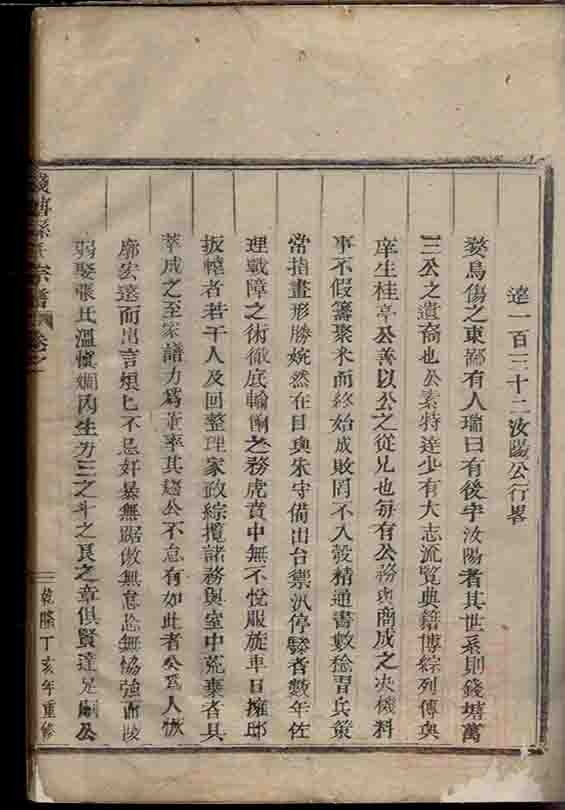 達一百三十二汝陽公行畧
婺烏傷之東鄙有人瑞曰有後字汝陽者其世系則錢塘萬
三公之遺裔也公素特達少有大志流覽典籍傳綜列傳與
庠生桂亭公善以公之從兄也每有公務與商成之决機料
事不假籌聚米而終始成敗罔不入彀精通書數稔習兵策
常指畫形勝婉然在目與朱守備出台禦汛停驂者數年佐
理戰障之術徹底輸之務虎賁中無不悅服旋車日擁邸
扳轅者若干人及回整理家政綜攬諸務與室中荒棄者具
萃成之至家譜力為董率其趨公不怠有如此者公為人恢
廓宏遠而出言侃侃不忌奸暴無踞傲無怠忿無恊強而陵
弱娶張氏溫慎嫻内生方三之斗之良之章俱賢達兄嗣公
錢塘孫氏宗譜 卷之
乾隆丁亥年重修